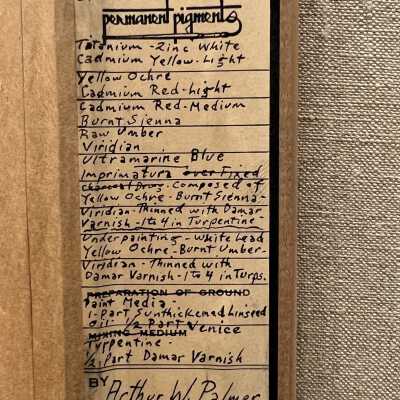 permanent pigments
Titanium - Zinc White
Cadmium Yellow - Light
Yellow Ochre
Cadmium Red - Light
Cadmium Red - Medium
Burnt Sienna
Raw Umber
Viridian
Ultramarine Blue
Imprimatura over Fixed
Charcoal Drwg. Composed of
Yellow Ochre - Burnt Sienna -
Viridian - Thinned with Damar
Varnish - 1 to 4 in Turpentine -
Underpainting - White Lead
Yellow Ochre - Burnt Umber -
Viridian - Thinned with
Damar Varnish - 1 to 4 in Turps.
PREPARATION OF GROUND
Paint Media -
1-Part Sunthickened Linseed
Oil - 1/2 Part Venice
MIXING MEDIUM
Turpentine -
1/2 Part Damar Varnish
BY Arthur W. Palmer